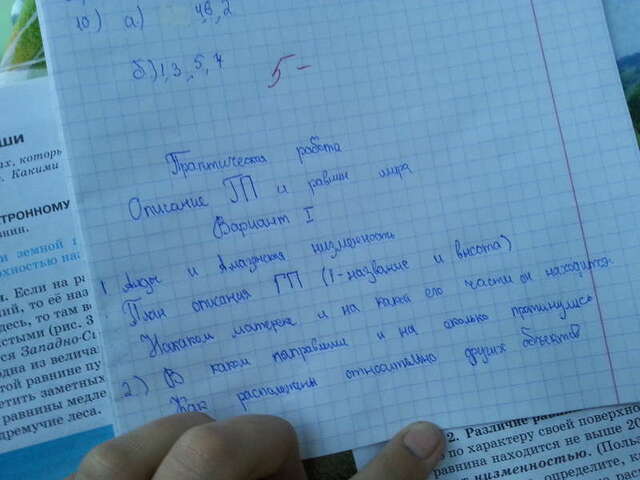 10) а) 4в, 2
б) 1, 3, 5, 7
5-
Практическая работа
Описание ГП и равнин мира
Вариант I
1 Анды и Амазонская низменность
План описания ГП (1-название и высота)
Накаком матереке и на какой его части он находится.
2) В каком направлении и на сколько протянулись
Как расположены относительно других объектов
ШИ
ах, которь
е. Какими
ТРОННОМУ
внин.
и земной п
рхностью наз
и. Если на ра
ний, то её наз
здесь, то там во
стыми (рис. 3
ся Западно-Си
одна из велича
той равнине пу
етить заметных
равнины медле
дремучие леса.
2. Различие равн
по характеру своей поверхнос
равнина находится не выше 20
низменностью. (Поль
определите, ка